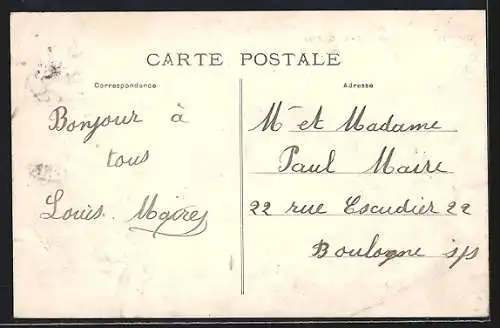 CARTE POSTALE
Correspondance
Bonjour à
tous
Louis.
Adresse
Mr et Madame
Paul Maire
22 rue Escudier 22
Boulogne s/s